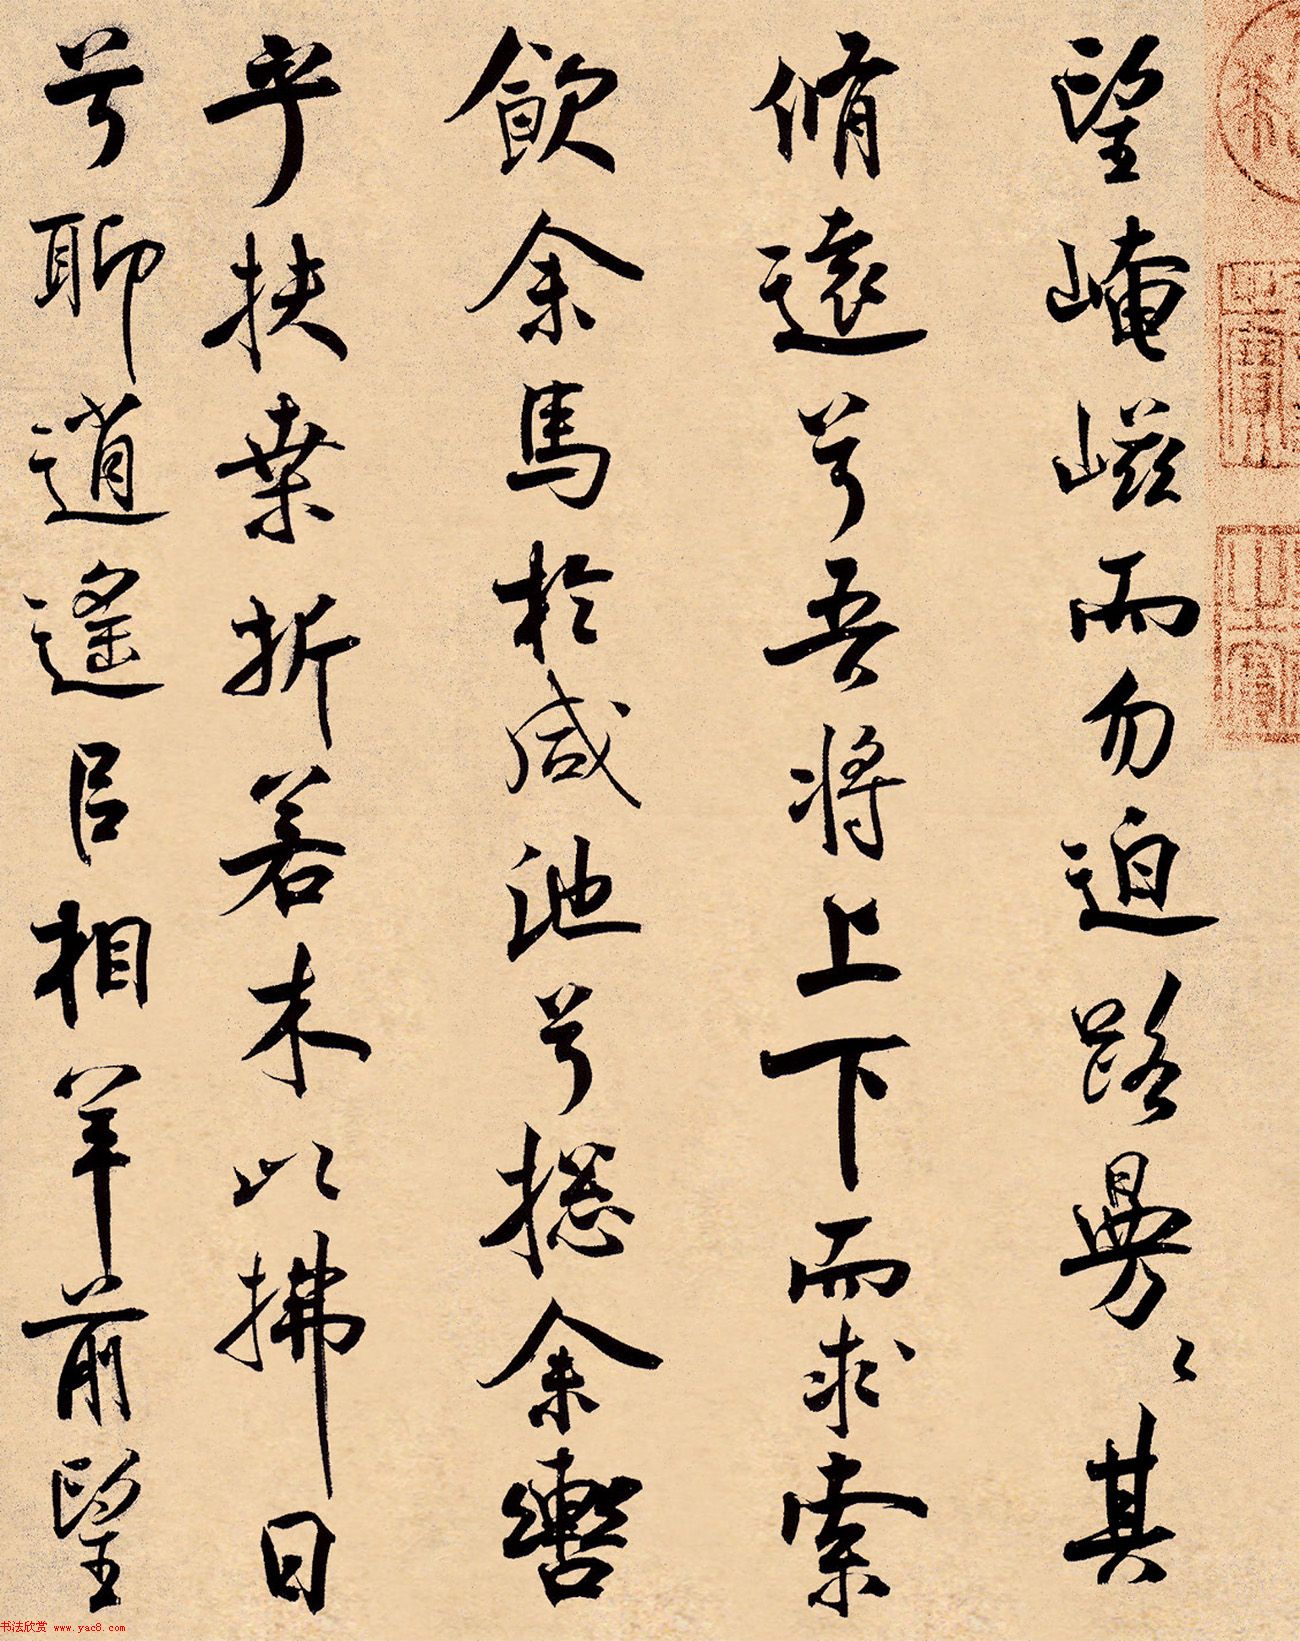 望崦嵫而勿迫路曼〻其
脩遠兮吾将上下而求索
飲余馬於咸池兮揔余轡
乎扶桒折若木以拂日
兮聊逍遙㠯相羊前望
之寶
之寶
书法欣赏 www.yac8.com